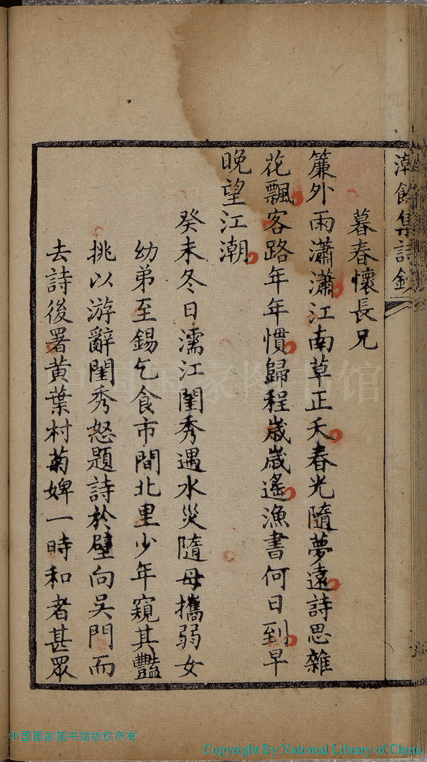 暮春懷長兄
簾外雨瀟瀟江南草正夭春光隨夢遠詩思雜
花飄客路年年慣歸程歲歲遙漁書何日到早
晚望江潮
癸未冬日濡江閨秀遇水災隨母攜弱女
幼弟至錫乞食市間北里少年窺其豔
挑以游辭閨秀怒題詩於壁向吳門而
去詩後署黃葉村菊婢一時和者甚眾
餘集詩鈔
中国国家图书馆
中国国家图书馆版权所有
Copyright By National Library of China